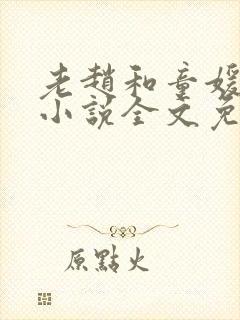 老趙和童媛
小說全文免
原點火